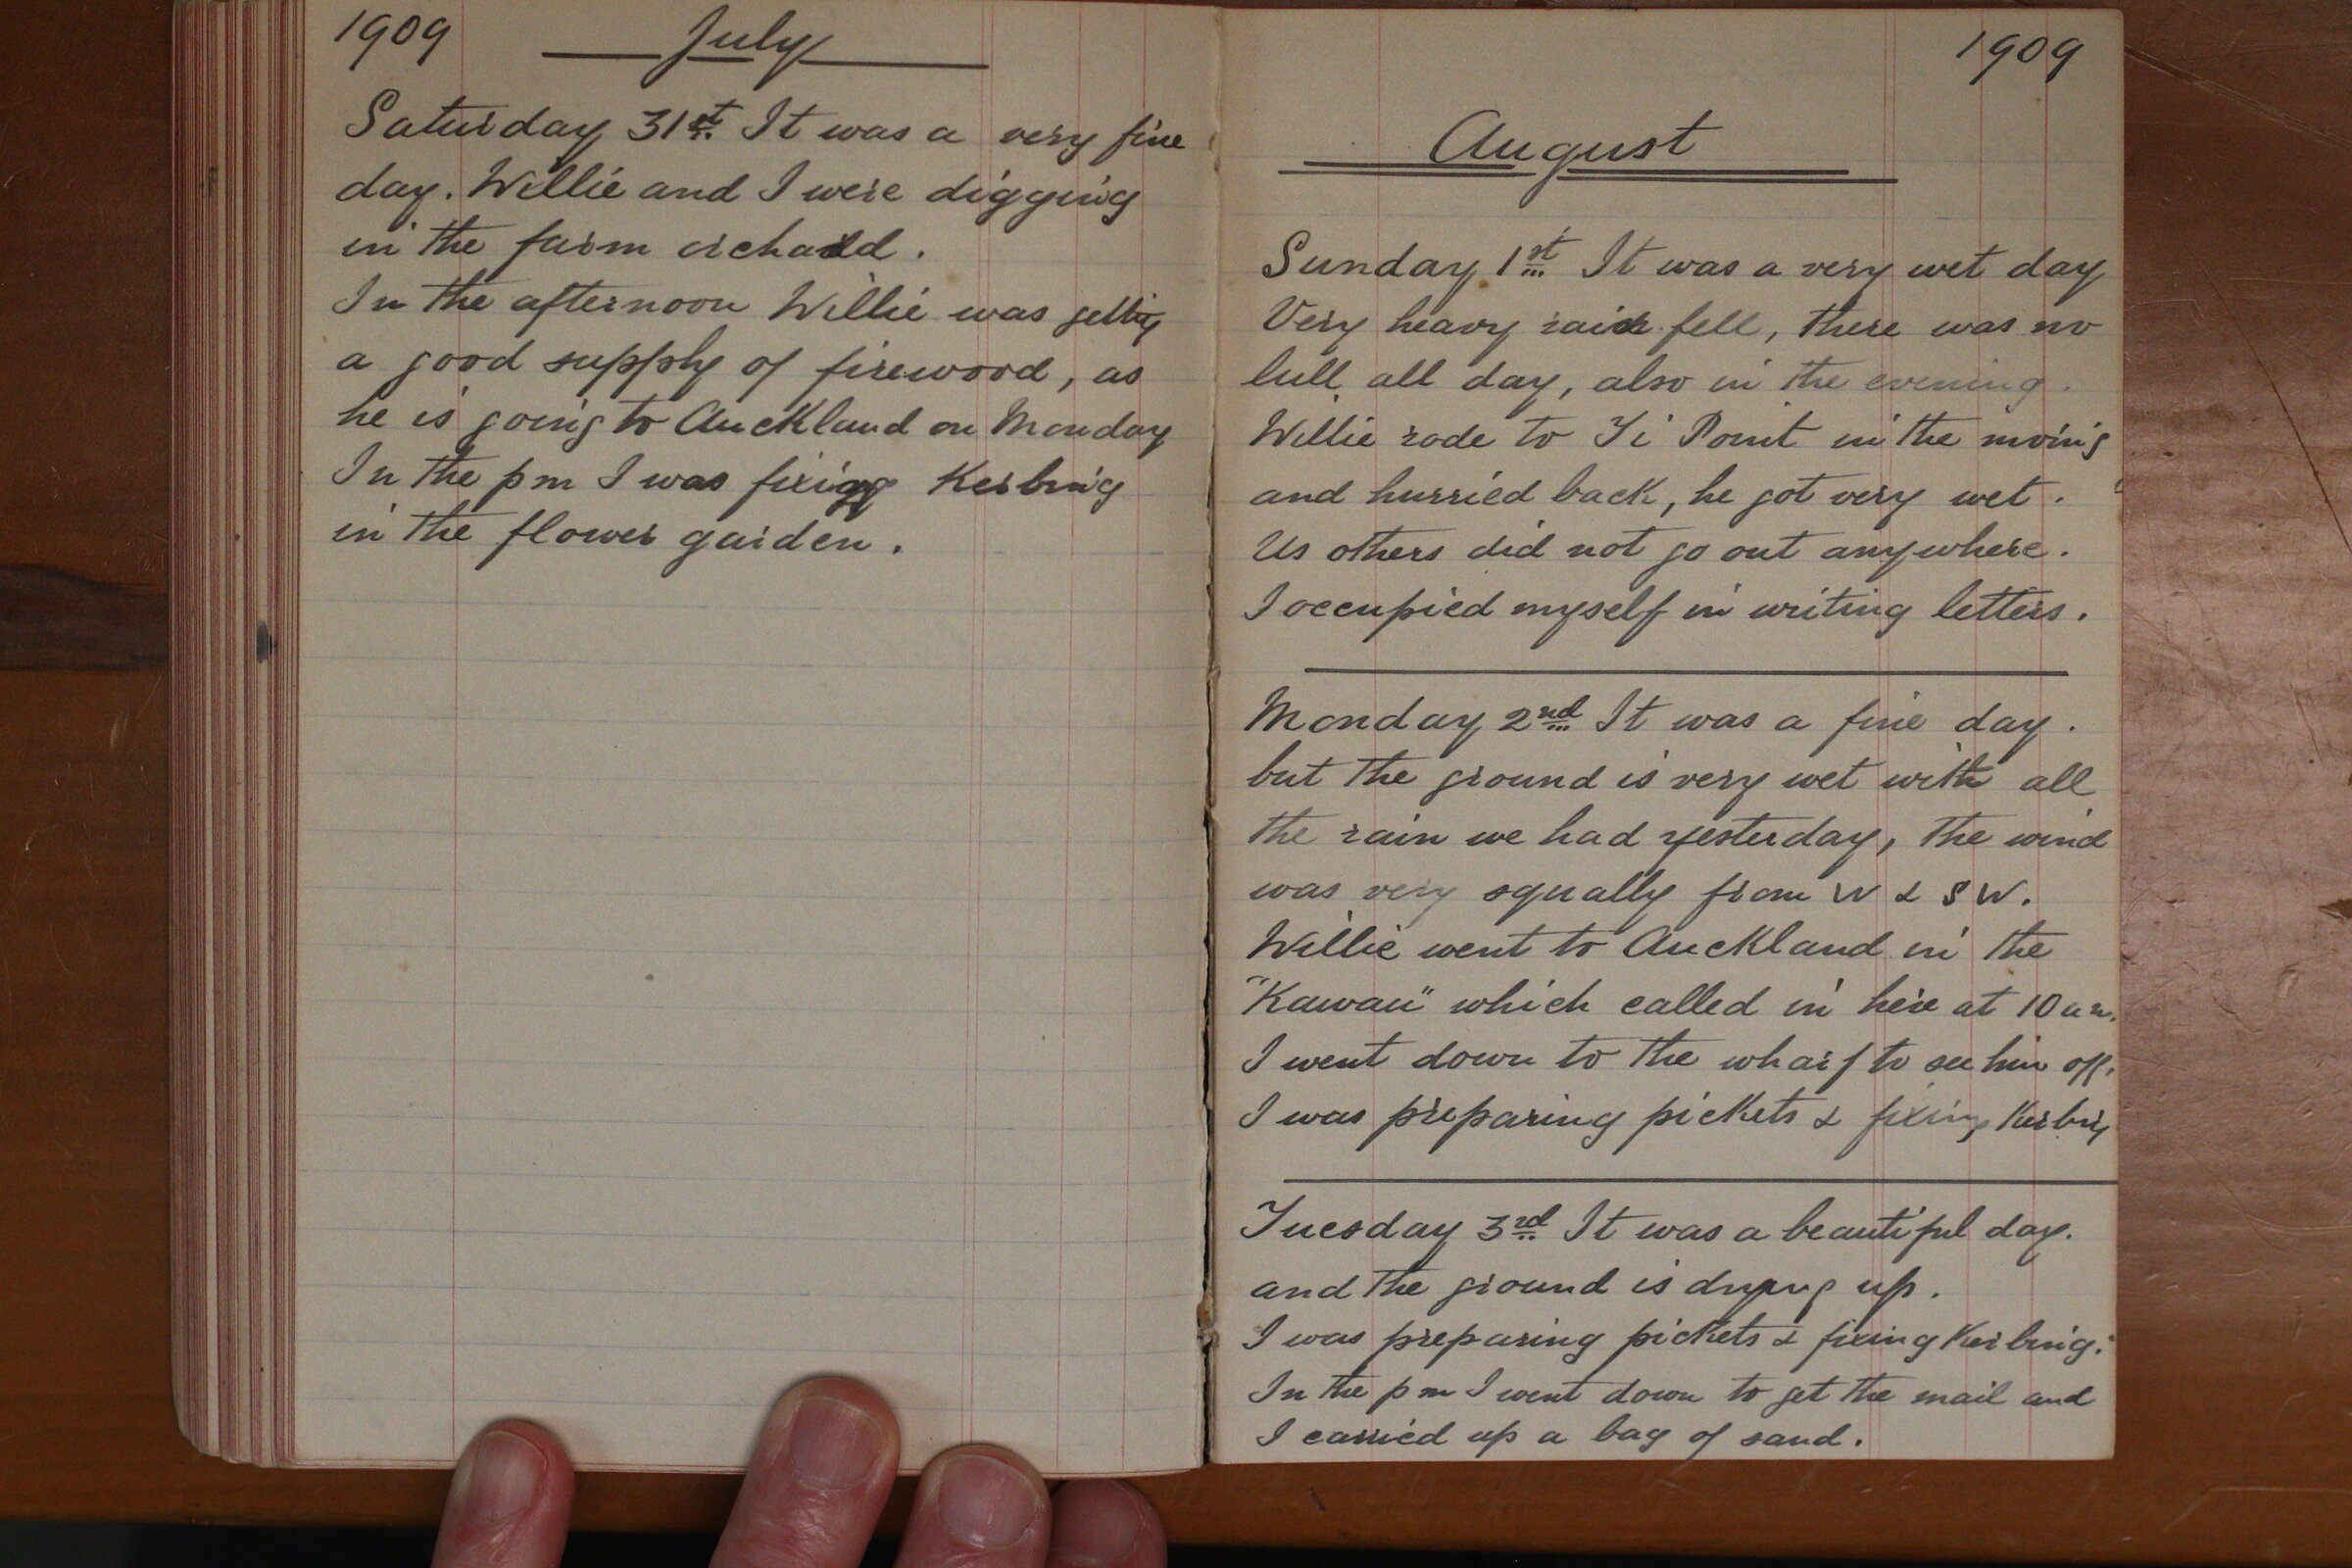 1909 July
Saturday 31st It was a very fine
day. Willie and I were digging
in the farm orchard.
In the afternoon Willie was getting
a good supply of firewood, as
he is going to Auckland on Monday
In the pm I was fixing Kerbing
in the flower garden.
1909
August
Sunday 1st It was a very wet day
Very heavy rain fell, there was no
lull all day, also in the evening.
Willie rode to Ti Point in the morning
and hurried back, he got very wet.
Us others did not go out anywhere.
I occupied myself in writing letters.
Monday 2nd It was a fine day.
but the ground is very wet with all
the rain we had yesterday, the wind
was very squally from W & SW.
Willie went to Auckland in the
"Kawau" which called in here at 10 am.
I went down to the wharf to see him off.
I was preparing pickets & fixing Kerbing
Tuesday 3rd It was a beautiful day.
and the ground is drying up.
I was preparing pickets & fixing Kerbing.
In the pm I went down to get the mail and
I carried up a bag of sand.